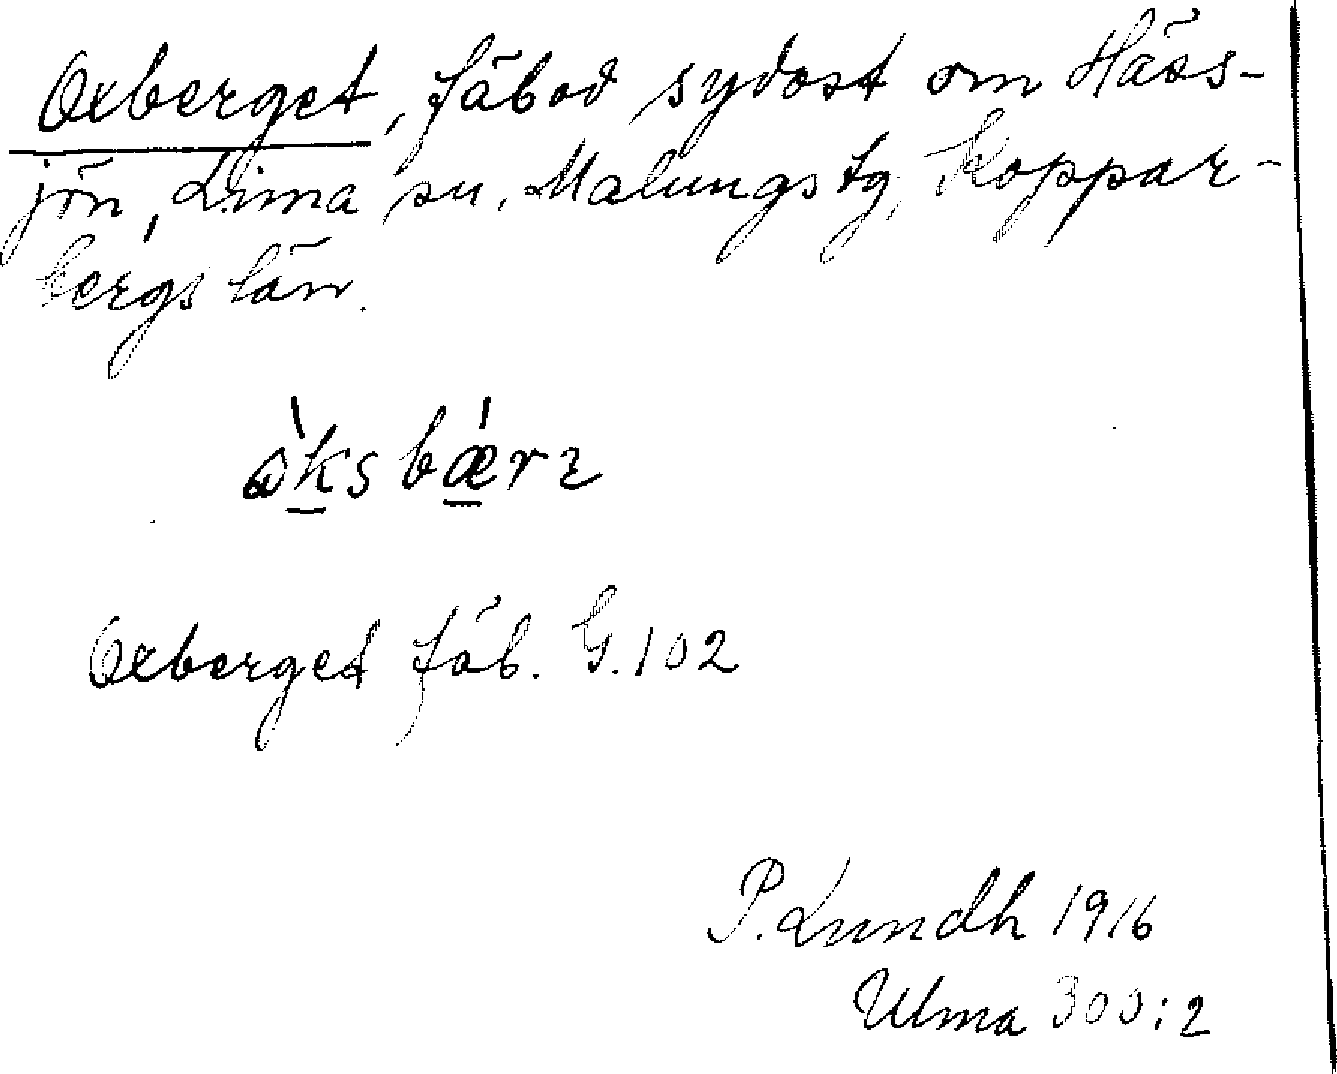 Oxberget, fäbod sydost om Häss-
jön, Lima sn, Malungs tg, Koppar-
bergs län.
Oxberget fäb. G. 102
P. Lundh 1916
Ulma 300:2